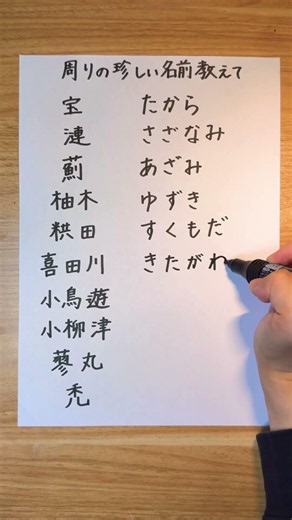 周りの珍しい名前教えて
宝 たから
漣 さざなみ
薊 あざみ
柚木 ゆずき
粠田 すくもだ
喜田川 きたがわ
小鳥遊
小柳津
蓼丸
禿